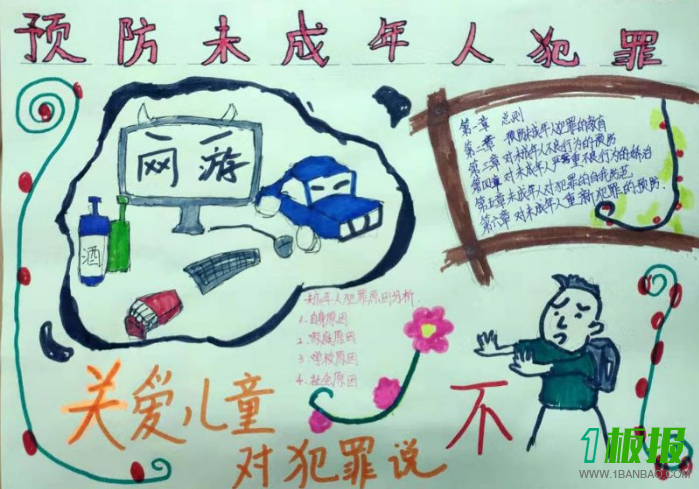 预防未成年人犯罪
网游
酒
第一章 总则
第二章 预防未成年人犯罪的教育
第三章 对未成年人不良行为的预防
第四章 对未成年人严重不良行为的矫治
第五章 未成年人对犯罪的自我防范
第六章 对未成年人重新犯罪的预防.
未成年人犯罪原因分析.
1.自身原因
2.家庭原因
3.学校原因
4.社会原因
关爱儿童
对犯罪说
不
1板报
WWW.1BANBAO.COM